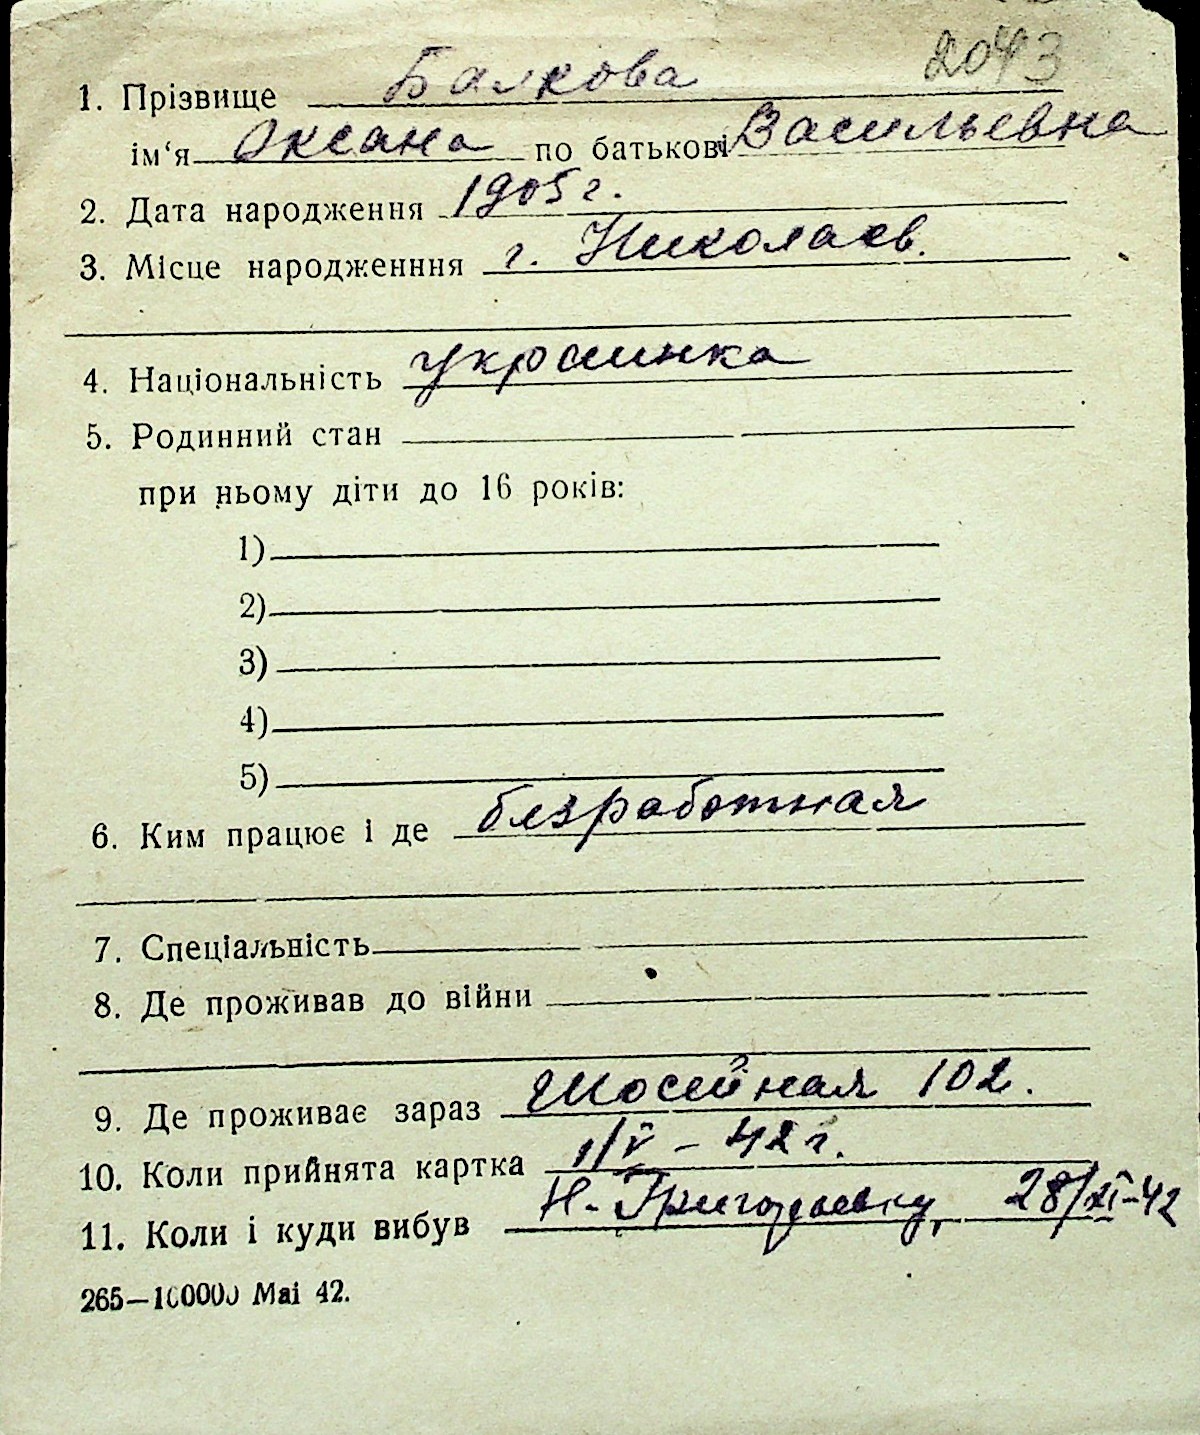 2043
1. Прізвище Балкова
ім‘я Оксана по батькові Васильевна
2. Дата народження 1905 г.
3. Місце народженння г. Николаев.
4. Національність украинка
5. Родинний стан
при ньому діти до 16 років:
1)
2)
3)
4)
5)
6. Ким працює і де безработная
7. Спеціальність
8. Де проживав до війни
9. Де проживає зараз Шосейная 102.
10. Коли прийнята картка 1/V – 42 г.
11. Коли і куди вибув Н-Григорьевку, 28/XI-42
265—100000 Mai 42.